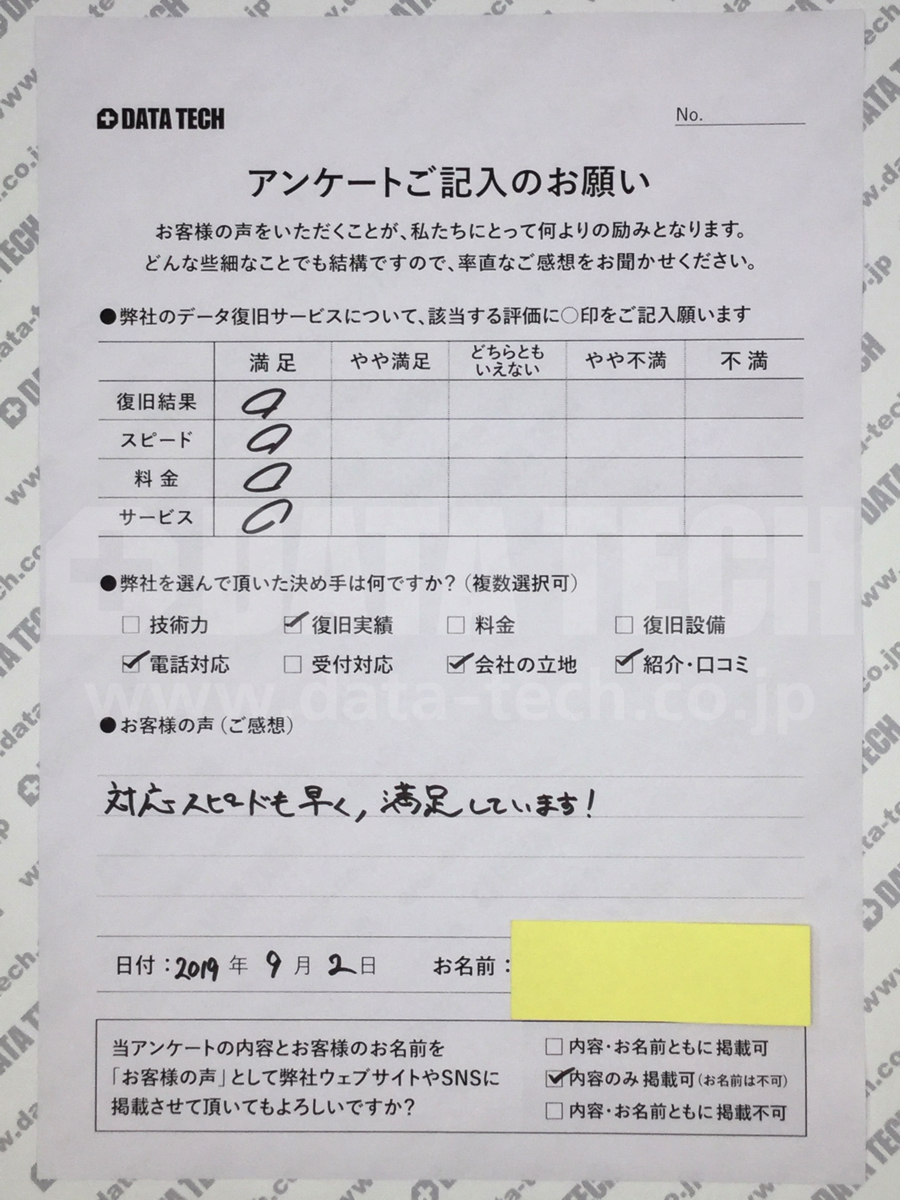 DATA TECH
No.
アンケートご記入のお願い
お客様の声をいただくことが、私たちにとって何よりの励みとなります。
どんな些細なことでも結構ですので、率直なご感想をお聞かせください。
●弊社のデータ復旧サービスについて、該当する評価に○印をご記入願います
満足 やや満足 どちらとも いえない やや不満 不満
復旧結果 ○
スピード ○
料金 ○
サービス ○
●弊社を選んで頂いた決め手は何ですか?(複数選択可)
□ 技術力 ☑ 復旧実績 □ 料金 □ 復旧設備
☑ 電話対応 □ 受付対応 ☑ 会社の立地 ☑ 紹介・口コミ
DATA TECH
www.data-tech.co.jp
●お客様の声(ご感想)
対応スピードも早く,満足しています!
日付:2019年 9月 2日 お名前:
当アンケートの内容とお客様のお名前を
「お客様の声」として弊社ウェブサイトやSNSに
掲載させて頂いてもよろしいですか?
□ 内容・お名前ともに掲載可
☑ 内容のみ掲載可(お名前は不可)
□ 内容・お名前ともに掲載不可